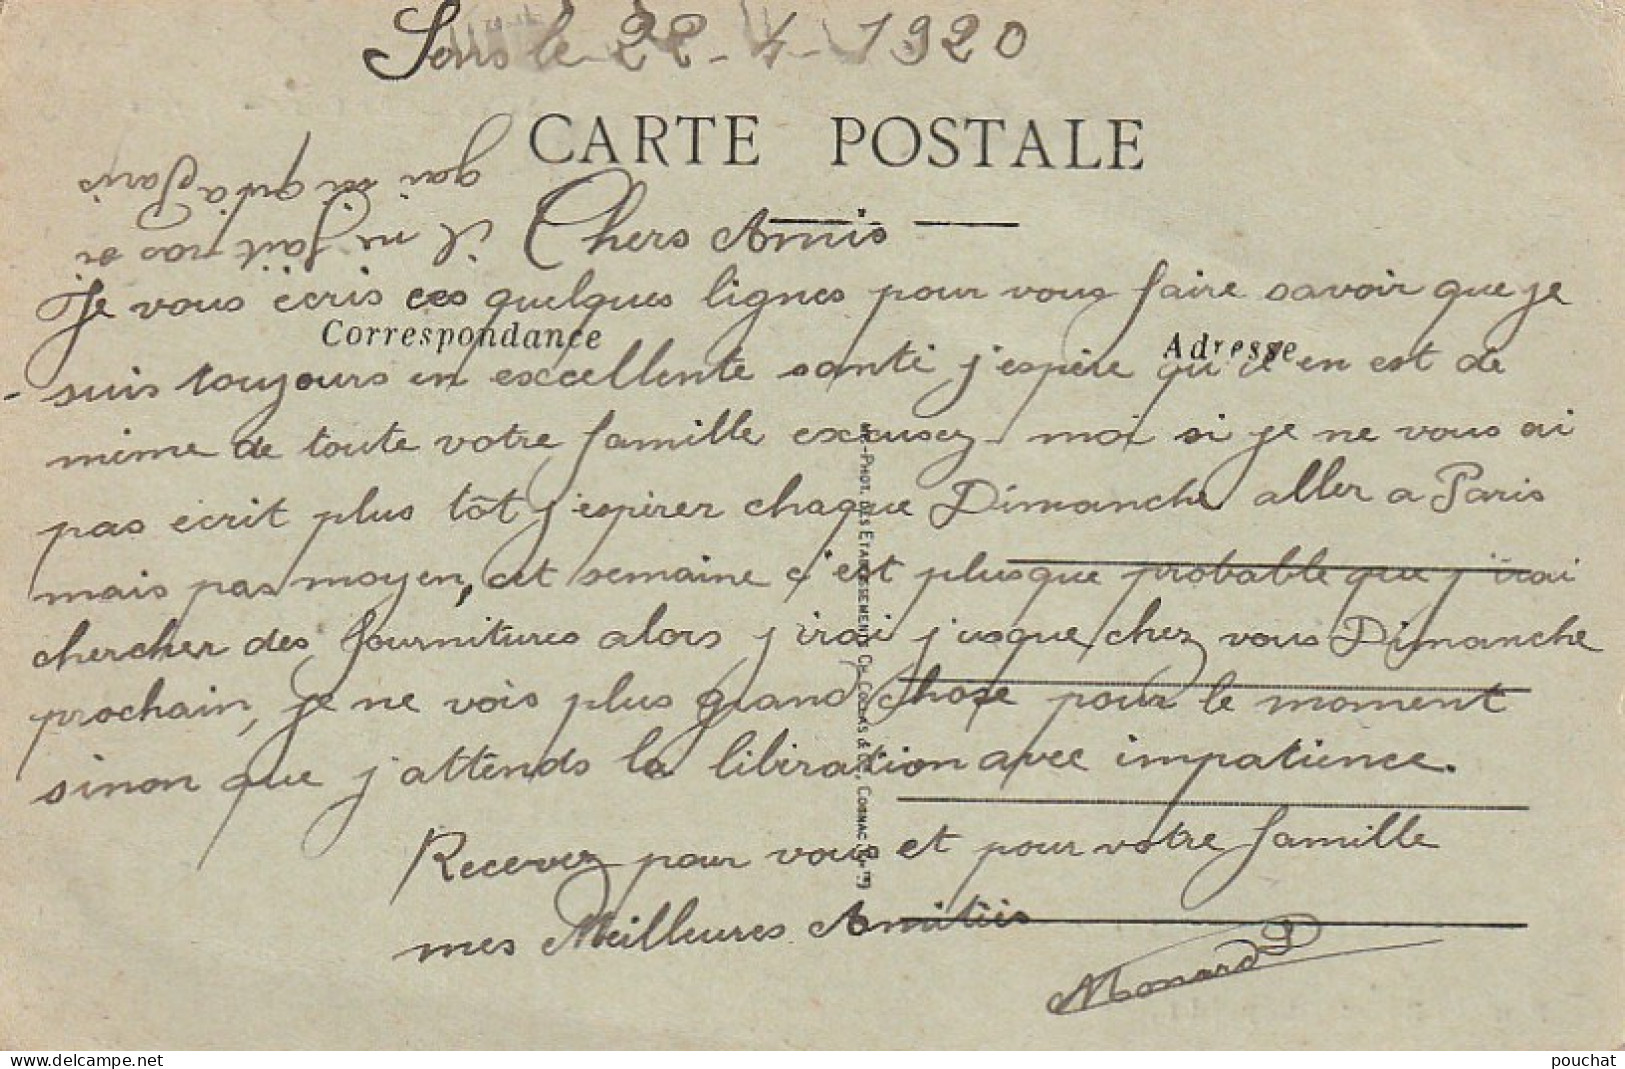 Sens le 22-4-1920
CARTE POSTALE
il ne fait pas si
gai ici qu'a Paris
Chers Amis
Je vous écris ces quelques lignes pour vous faire savoir que je
Correspondance
Adresse
suis toujours en excellente santé j'espère qu'il en est de
même de toute votre famille excusez-moi si je ne vous ai
pas écrit plus tôt j'espérer chaque Dimanche aller a Paris
mais pas moyen, cet semaine c'est plusque probable que j'irai
chercher des fournitures alors j'irai j'usque chez vous Dimanche
prochain, je ne vois plus grand chose pour le moment
sinon que j'attends la libération avec impatience.
Recevez pour vous et pour votre famille
mes Meilleures Amitiés
Monard
PHOT. DES ETABLISSEMENTS CH. COLLAS & Cie, COGNAC
delcampe.net
pouchat